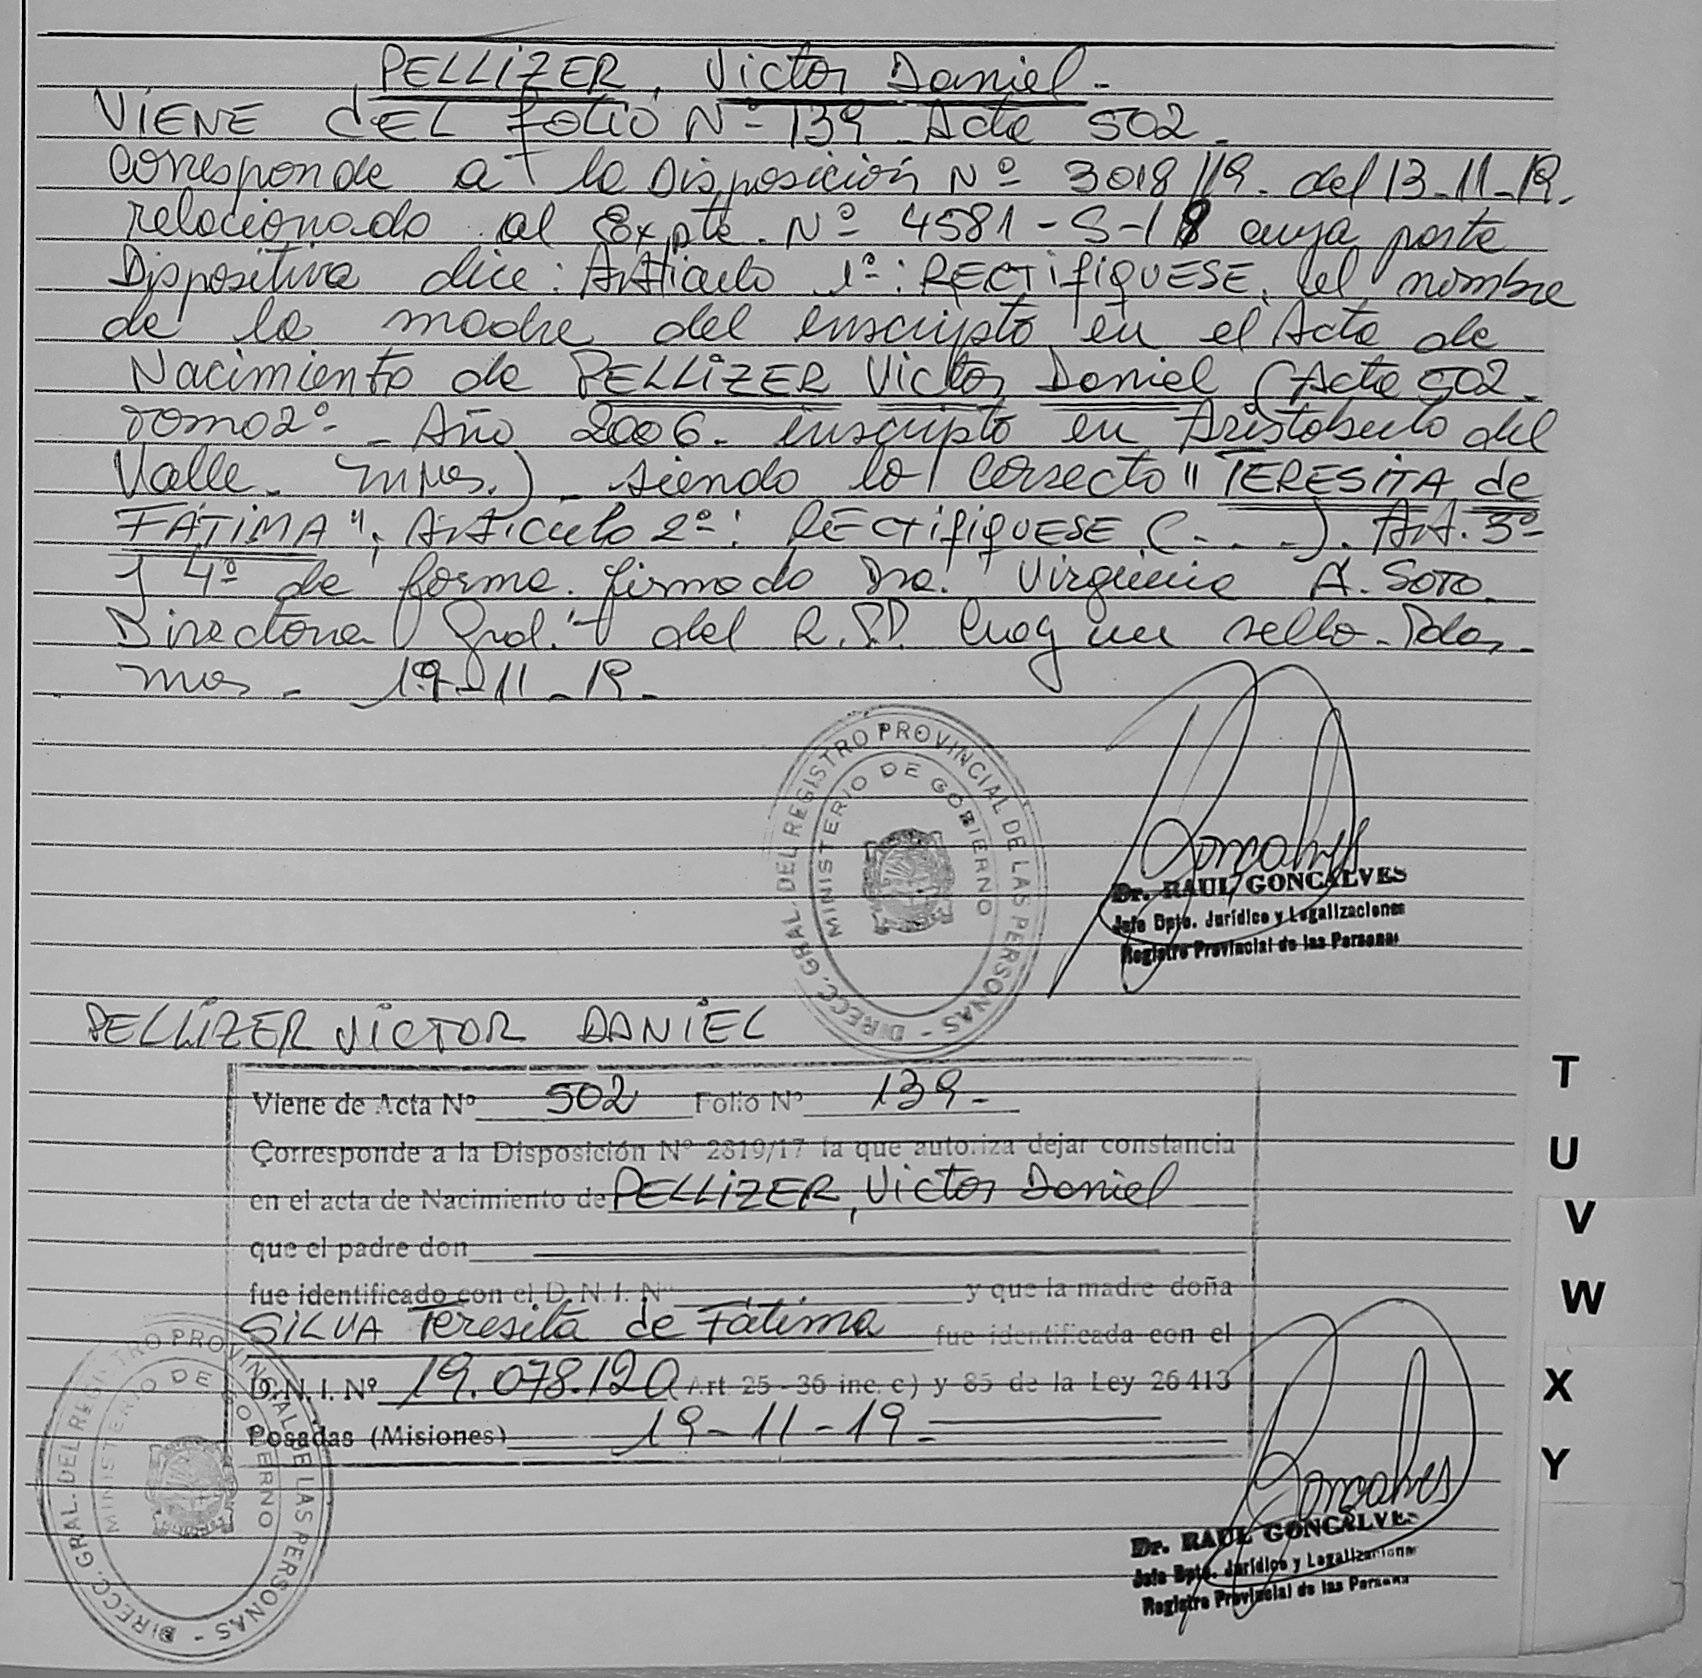 PELLIZER, Victor Daniel.-
VIENE dEL folio Nº 139 Acta 502.
Corresponde a la Disposición Nº 3018/19. del 13-11-19.
relacionado al Expte. Nº 4581-S-18 cuya parte
Dispositiva dice: Artículo 1º: RECTIFIQUESE, el nombre
de la madre del inscripto en el Acta de
Nacimiento de PELLIZER Victor Daniel (Acta 502.
Tomo 2º - Año 2006. inscripto en Aristobulo del
Valle. Mnes.) siendo lo correcto "TERESITA de
FÁTIMA", Artículo 2º: RECTIFIQUESE (...). Art. 3º
y 4º de forma. firmado Dra. Virginia A. Soto.
Directora Gral. del R.P.P. hay un sello. Pdas.
Mnes. 19-11-19.
DIRECC. GRAL. DEL REGISTRO PROVINCIAL DE LAS PERSONAS -
MINISTERIO DE GOBIERNO
Goncalves
Dr. RAUL GONCALVES
Jefe Dpto. Jurídico y Legalizaciones
Registro Provincial de las Personas
PELLIZER VICTOR DANIEL
Viene de Acta Nº 502 Folio Nº 139-
Corresponde a la Disposición Nº 2819/17 la que autoriza dejar constancia
en el acta de Nacimiento de PELLIZER, Victor Daniel
que el padre don
fue identificado con el D.N.I. Nº y que la madre doña
SILVA Teresita de Fátima fue identificada con el
D.N.I. Nº 19.078.120 Art 25 - 36 inc. c) y 85 de la Ley 26413
Posadas (Misiones) 19-11-19-
DIRECC. GRAL. DEL REGISTRO PROVINCIAL DE LAS PERSONAS -
MINISTERIO DE GOBIERNO
Goncalves
Dr. RAUL GONCALVES
Jefe Dpto. Jurídico y Legalizaciones
Registro Provincial de las Personas
T
U
V
W
X
Y